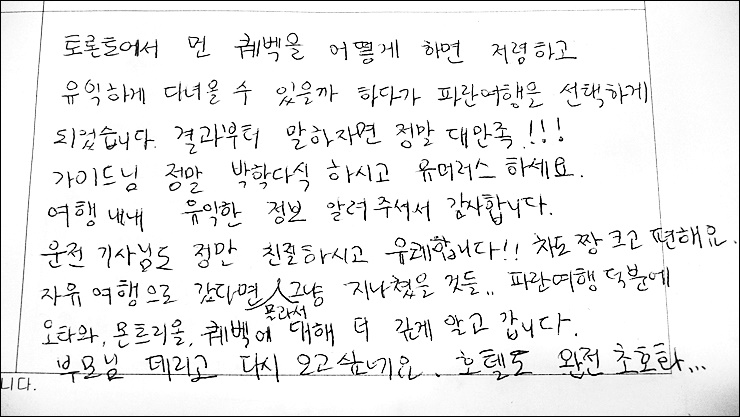 토론토에서 먼 퀘벡을 어떻게 하면 저렴하고
유익하게 다녀올 수 있을까 하다가 파란여행을 선택하게
되었습니다. 결과부터 말하자면 정말 대만족!!!
가이드님 정말 박학다식 하시고 유머러스 하세요.
여행 내내 유익한 정보 알려주셔서 감사합니다.
운전 기사님도 정말 친절하시고 유쾌합니다!! 차도 짱 크고 편해요.
자유 여행으로 갔다면 몰라서 그냥 지나쳤을 것들.. 파란여행 덕분에
오타와, 몬트리올, 퀘벡에 대해 더 깊게 알고 갑니다.
부모님 데리고 다시 오고싶네요. 호텔도 완전 초호화...
니다.